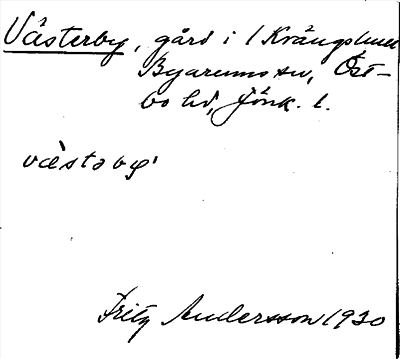 Västerby, gård i 1 Krängshult
Byarums sn, Öst-
bo hd, Jönk. l.
væ̀stəby
Fritz Andersson 1930